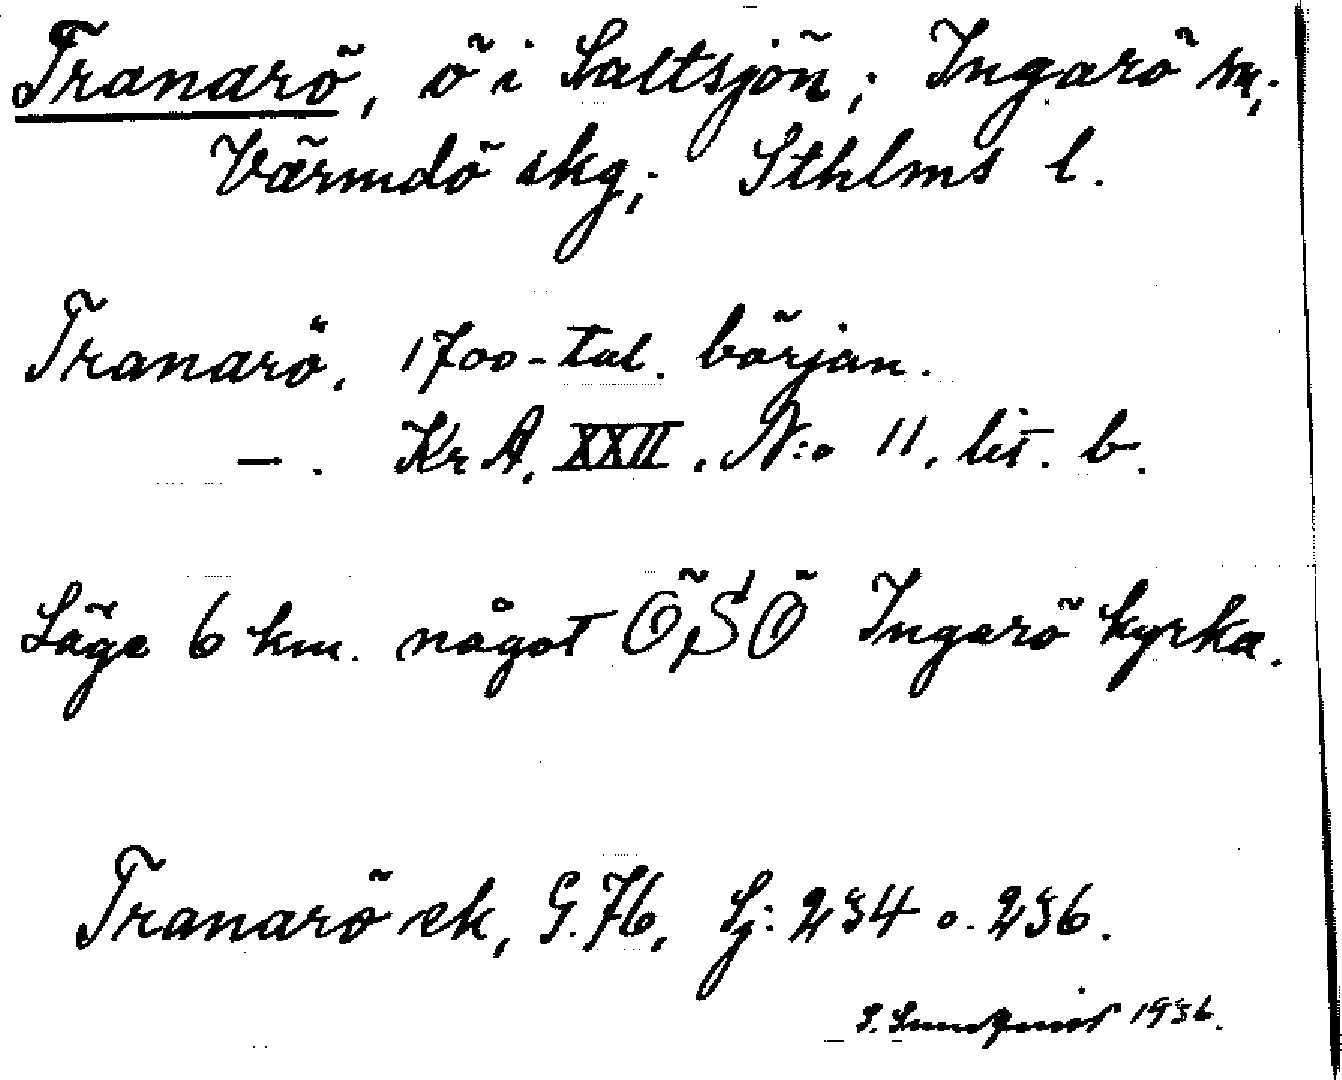 Tranarö, ö i Saltsjön; Ingarö sn;
Värmdö skg; Sthlms l.
Tranarö. 1700-tal. början.
— . KrA. XXII. N:o 11. lit. b.
Läge 6 km. något ÖSÖ Ingarö kyrka.
Tranarö ek, G. 76, Lj: 234 o. 236.
S. Sundquist 1936.